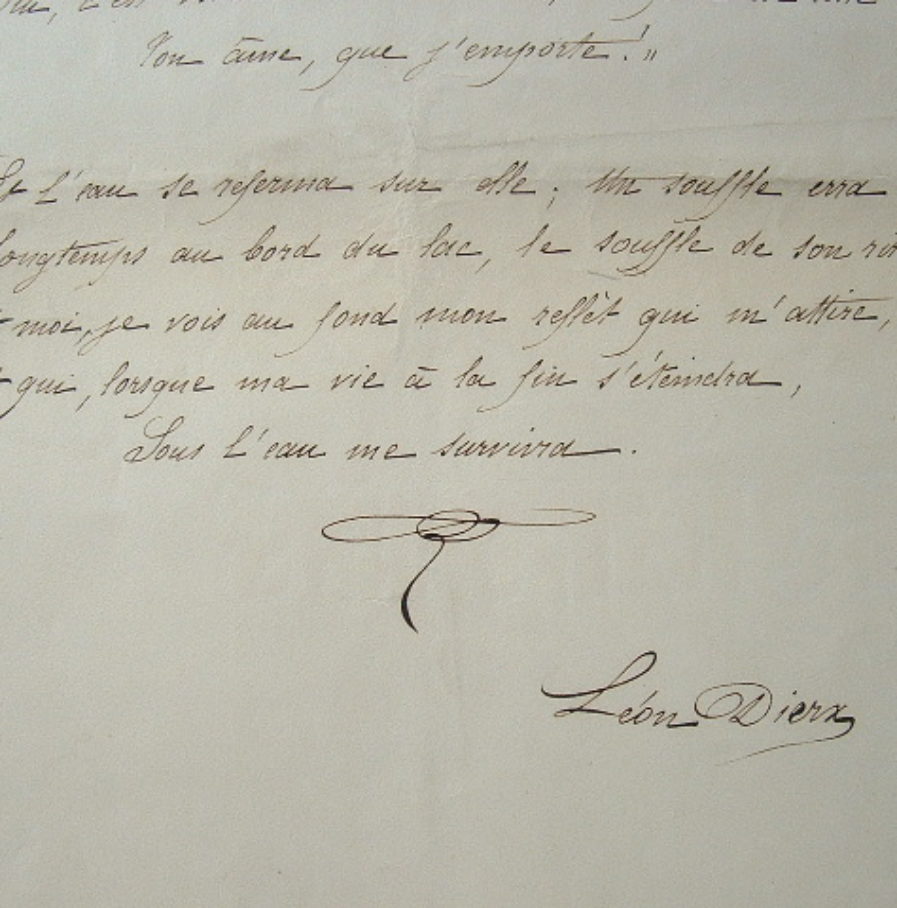 Ton âme, que j'emporte! »
Et l'eau se referma sur elle; Un souffle erra
Longtemps au bord du lac, le souffle de son rir
moi, je vois au fond mon reflèt qui m'attire,
qui, lorsque ma vie à la fin s'éteindra,
Sous l'eau me survivra.
Léon Dierx